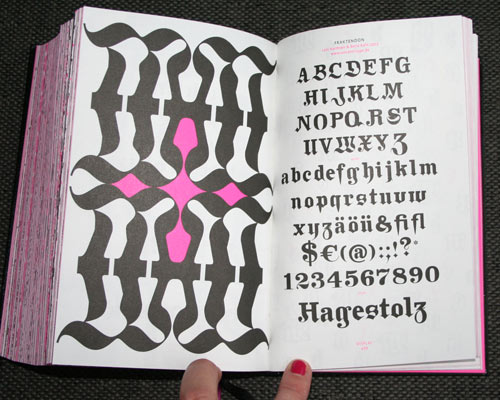 FRAKTENDON
ABCDEFG
HIJKLM
NOPQRST
UVWXYZ
abcdefghijklm
nopqrstuvw
xyzäöü&fifl
$€(@):;!?*
1234567890
Hagestolz